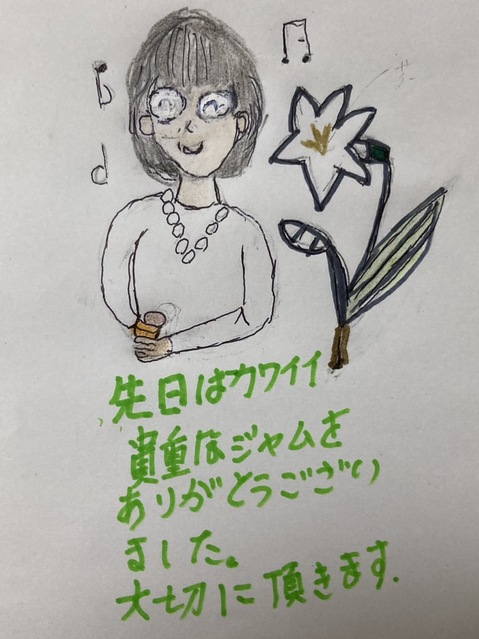 先日はカワイイ
貴重なジャムを
ありがとうござい
ました。
大切に頂きます.